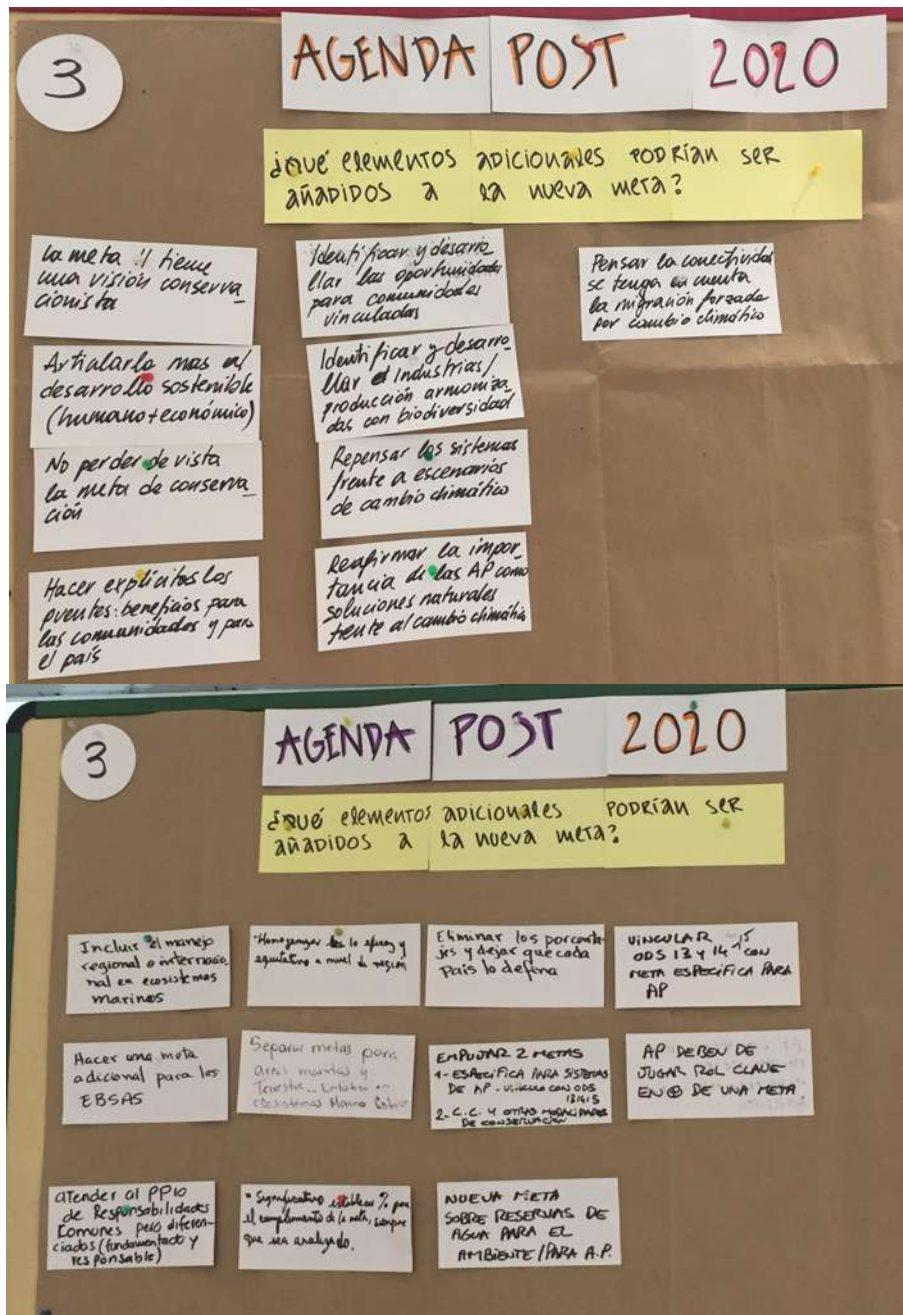 3
AGENDA POST 2020
¿QUÉ ELEMENTOS ADICIONALES PODRÍAN SER
AÑADIDOS A LA NUEVA META?
La meta 11 tiene
una visión conserva_
cionista
Articularla mas al
desarrollo sostenible
(humano+económico)
No perder de vista
la meta de conserva_
ción
Hacer explícitos los
puentes: beneficios para
las comunidades y para
el país
Identificar y desarro_
llar las oportunidades
para comunidades
vinculadas
Identificar y desarro_
llar industrias/
producción armoniza_
das con biodiversidad
Repensar los sistemas
frente a escenarios
de cambio climático
Reafirmar la impor-
tancia de las AP como
soluciones naturales
frente al cambio climático
Pensar la conectividad
se tenga en cuenta
la migración forzada
por cambio climático
3
AGENDA POST 2020
¿QUÉ ELEMENTOS ADICIONALES PODRÍAN SER
AÑADIDOS A LA NUEVA META?
Incluir el manejo
regional o internacio_
nal en ecosistemas
marinos
Homogenizar lo eficaz y
equitativo a nivel de región
Eliminar los porcenta_
jes y dejar que cada
país lo defina
VINCULAR
ODS 13 Y 14 15 CON
META ESPECÍFICA PARA
AP
Hacer una meta
adicional para los
EBSAS
Separar metas para
areas marinas y
Terrestre
ecosistemas Marino
EMPUJAR 2 METAS
1- ESPECÍFICA PARA SISTEMAS
DE AP - VINCULO CON ODS
13 14 15
2- C.C. Y OTRAS MODALIDADES
DE CONSERVACIÓN
AP DEBEN DE
JUGAR ROL CLAVE
EN ⊕ DE UNA META
atender al PP10
de Responsabilidades
Comunes pero diferen-
ciados (fundamentado y
responsable)
• Significativo establecer % para
el cumplimiento de la meta, siempre
que sea analizado.
NUEVA META
SOBRE RESERVAS DE
AGUA PARA EL
AMBIENTE/PARA A.P.